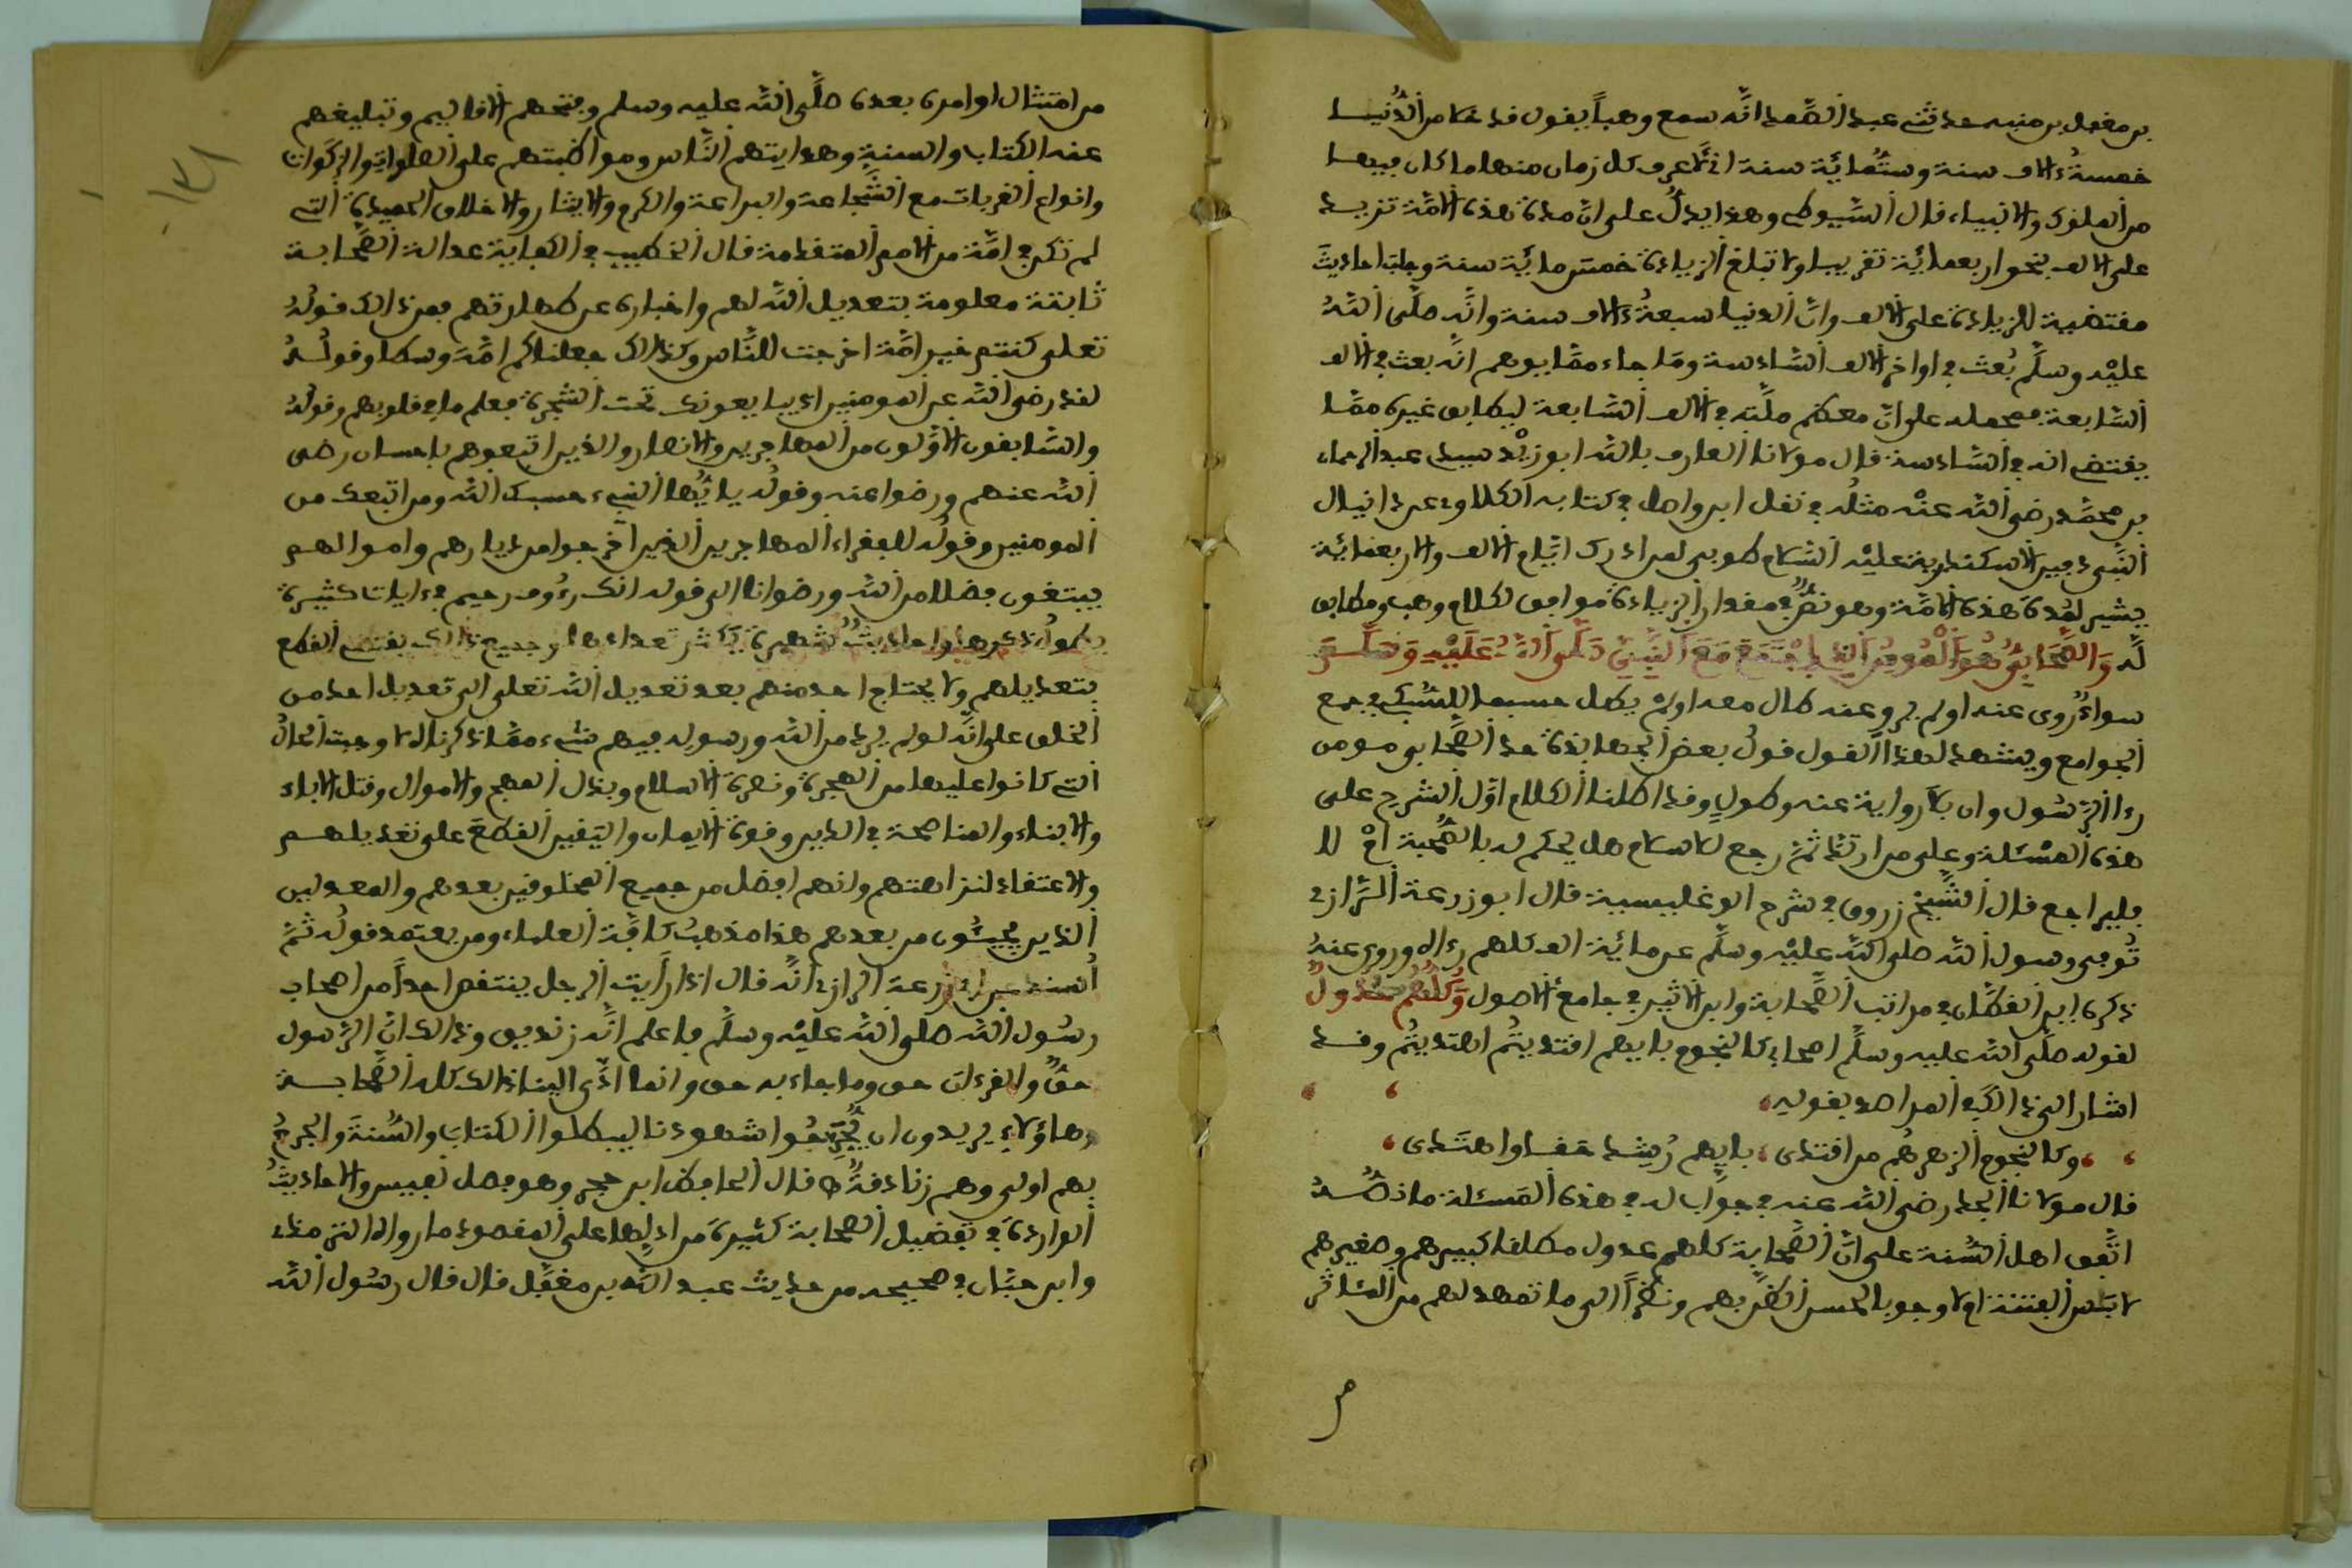 بن معقل بن منبه حدثني عبد الصمد أنه سمع وهباً يقول قد خلا من الدنيا
خمسة ءالاف سنة وستمائة سنة إني لأعرف كل زمان منها ما كان فيها
من الملوك والأنبياء قال السيوطي وهذا يدل على أن مدة هذه الأمة تزيد
على الألف بنحو أربعمائة تقريبا ولا تبلغ الزيادة خمس مائة سنة وجلب أحاديث
مقتضية للزيادة على الألف وأن الدنيا سبعة ءالاف سنة وأنه صلى الله
عليه وسلم بعث في أواخر الألف السادسة وما جاء مما يوهم أنه بعث في الألف
السابعة فمحمله على أن معظم ملته في الألف السابعة ليطابق غيره مما
يقتضي أنه في السادسة قال مولانا العارف بالله أبو زيد سيدي عبد الرحمان
بن محمد رضي الله عنه مثله في نقل ابن واصل في كتابه الكلاوي عن دانيال
النبي دفين الإسكندرية عليه السلام طوبى لمن أدرك أيام الألف والأربعمائة
يشير لمدة هذه الأمة وهو نص في مقدار الزيادة موافق لكلام وهب ومطابق
له والصحابي هو المومن الذي اجتمع مع النبي صلى الله عليه وسلم
سواء روى عنه أو لم يرو عنه طال معه أو لم يطل حسبما للسبكي في جمع
الجوامع ويشهد لهذا القول قول بعض الجهابذة حد الصحابي مومن
رءا الرسول وإن بلا رواية عنه وطول وقد أطلنا الكلام أول الشرح على
هذه المسئلة وعلى من ارتد ثم رجع للإسلام هل يحكم له بالصحبة أم لا
فليراجع قال الشيخ زروق في شرح الوغليسية قال أبو زرعة الرازي
توفي رسول الله صلى الله عليه وسلم عن مائة ألف كلهم رءاه وروى عنه
ذكره ابن القطان في مراتب الصحابة وابن الأثير في جامع الأصول وكلهم عدول
لقوله صلى الله عليه وسلم أصحابي كالنجوم بأيهم اقتديتم اهتديتم وقد
أشار إلى ذالك في المراصد بقوله
وكالنجوم الزهر هم من اقتدى بأيهم رشد حقا واهتدى
قال مولانا الجد رضي الله عنه في جواب له في هذه المسئلة ما نصه
اتفق أهل السنة على أن الصحابة كلهم عدول مطلقا كبيرهم وصغيرهم
لابس الفتنة أم لا وجوبا لحسن الظن بهم ونظرا إلى ما تمهد لهم من المئاثر
من
من امتثال أوامره بعده صلى الله عليه وسلم وفتحهم الأقاليم وتبليغهم
عنه الكتاب والسنة وهدايتهم الناس ومواظبتهم على الصلوات والزكوات
وأنواع القربات مع الشجاعة والبراعة والكرم والإيثار والأخلاق الحميدة التي
لم تكن في أمة من الأمم المتقدمة قال الخطيب في الكفاية عدالة الصحابة
ثابتة معلومة بتعديل الله لهم وإخباره عن طهارتهم فمن ذالك قوله
تعلى كنتم خير أمة أخرجت للناس وكذالك جعلناكم أمة وسطا وقوله
لقد رضي الله عن المومنين إذ يبايعونك تحت الشجرة فعلم ما في قلوبهم وقوله
والسابقون الأولون من المهاجرين والأنصار والذين اتبعوهم بإحسان رضي
الله عنهم ورضوا عنه وقوله يا أيها النبيء حسبك الله ومن اتبعك من
المومنين وقوله للفقراء المهاجرين الذين أخرجوا من ديارهم وأموالهم
يبتغون فضلا من الله ورضوانا إلى قوله إنك رءوف رحيم في ءايات كثيرة
يطول ذكرها وأحاديث شهيرة يكثر تعدادها وجميع ذالك يقتضي القطع
بتعديلهم ولا يحتاج أحد منهم بعد تعديل الله تعلى إلى تعديل أحد من
الخلق على أنه لو لم يرد من الله ورسوله فيهم شيء مما ذكرناه لأوجبت الحال
التي كانوا عليها من الهجرة ونصرة الإسلام وبذل المهج والأموال وقتل الآباء
والأبناء والمناصحة في الدين وقوة الإيمان واليقين القطع على تعديلهم
والاعتقاد لنزاهتهم وأنهم أفضل من جميع المخلوقين بعدهم والمعدلين
الذين يجيئون من بعدهم هذا مذهب كافة العلماء ومن يعتمد قوله ثم
أسند عن أبي زرعة الرازي أنه قال إذا رأيت الرجل ينتقص أحداً من أصحاب
رسول الله صلى الله عليه وسلم فاعلم أنه زنديق وذالك أن الرسول
حق والقرءان حق وما جاء به حق وإنما أدى إلينا ذالك كله الصحابة
وهاؤلاء يريدون أن يجرحوا شهودنا ليبطلوا الكتاب والسنة والجرح
بهم أولى وهم زنادقة قال الحافظ ابن حجر وهو فصل نفيس والأحاديث
الواردة في تفضيل الصحابة كثيرة من أدلها على المقصود ما رواه الترمذي
وابن حبان في صحيحه من حديث عبد الله بن مغفل قال قال رسول الله